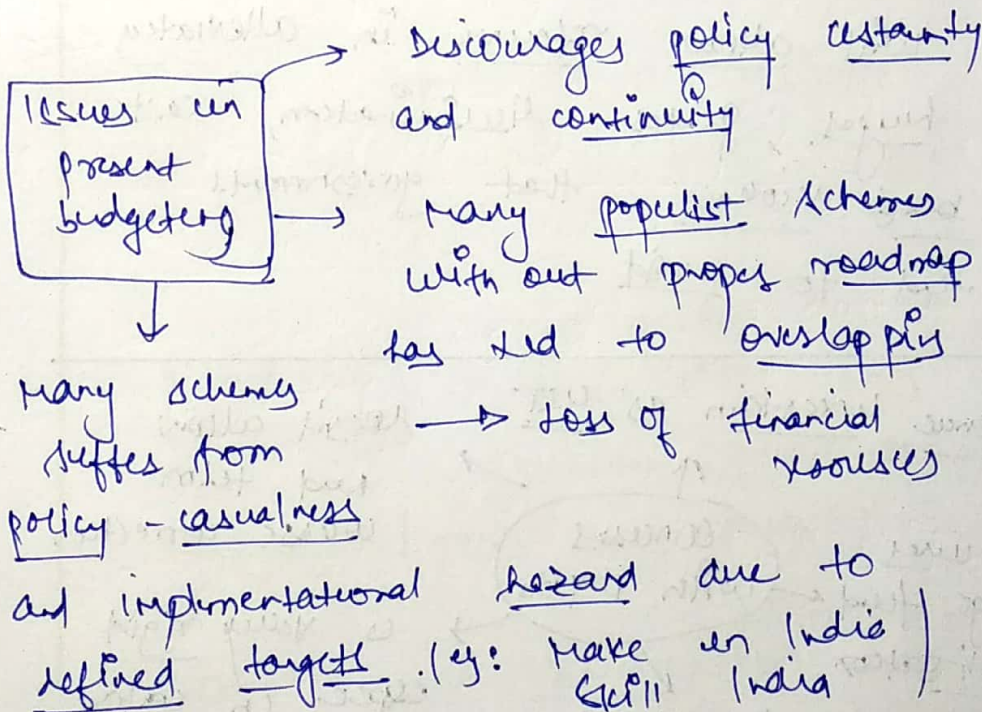 Issues in
present
budgeting
Discourages policy certainity
and continuity
Many populist schemes
with out proper roadmap
has led to overlapping
Loss of financial
resources
Many schemes
suffer from
policy - casualness
and implementational hazard due to
refined targets. (eg: Make in India
Skill India)